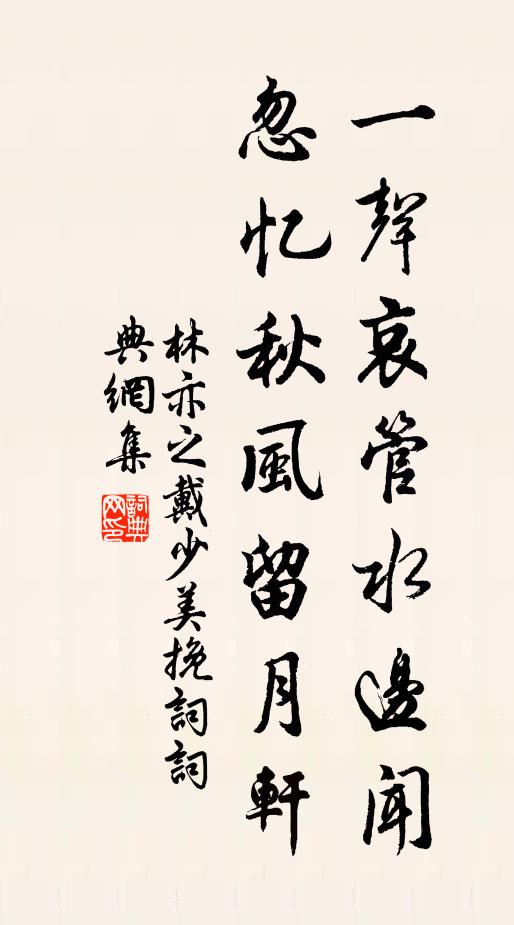 一聲哀管水邊聞
忽忆秋風留月軒
林亦之戴少美挽詞詞
典網集
詞典
网印